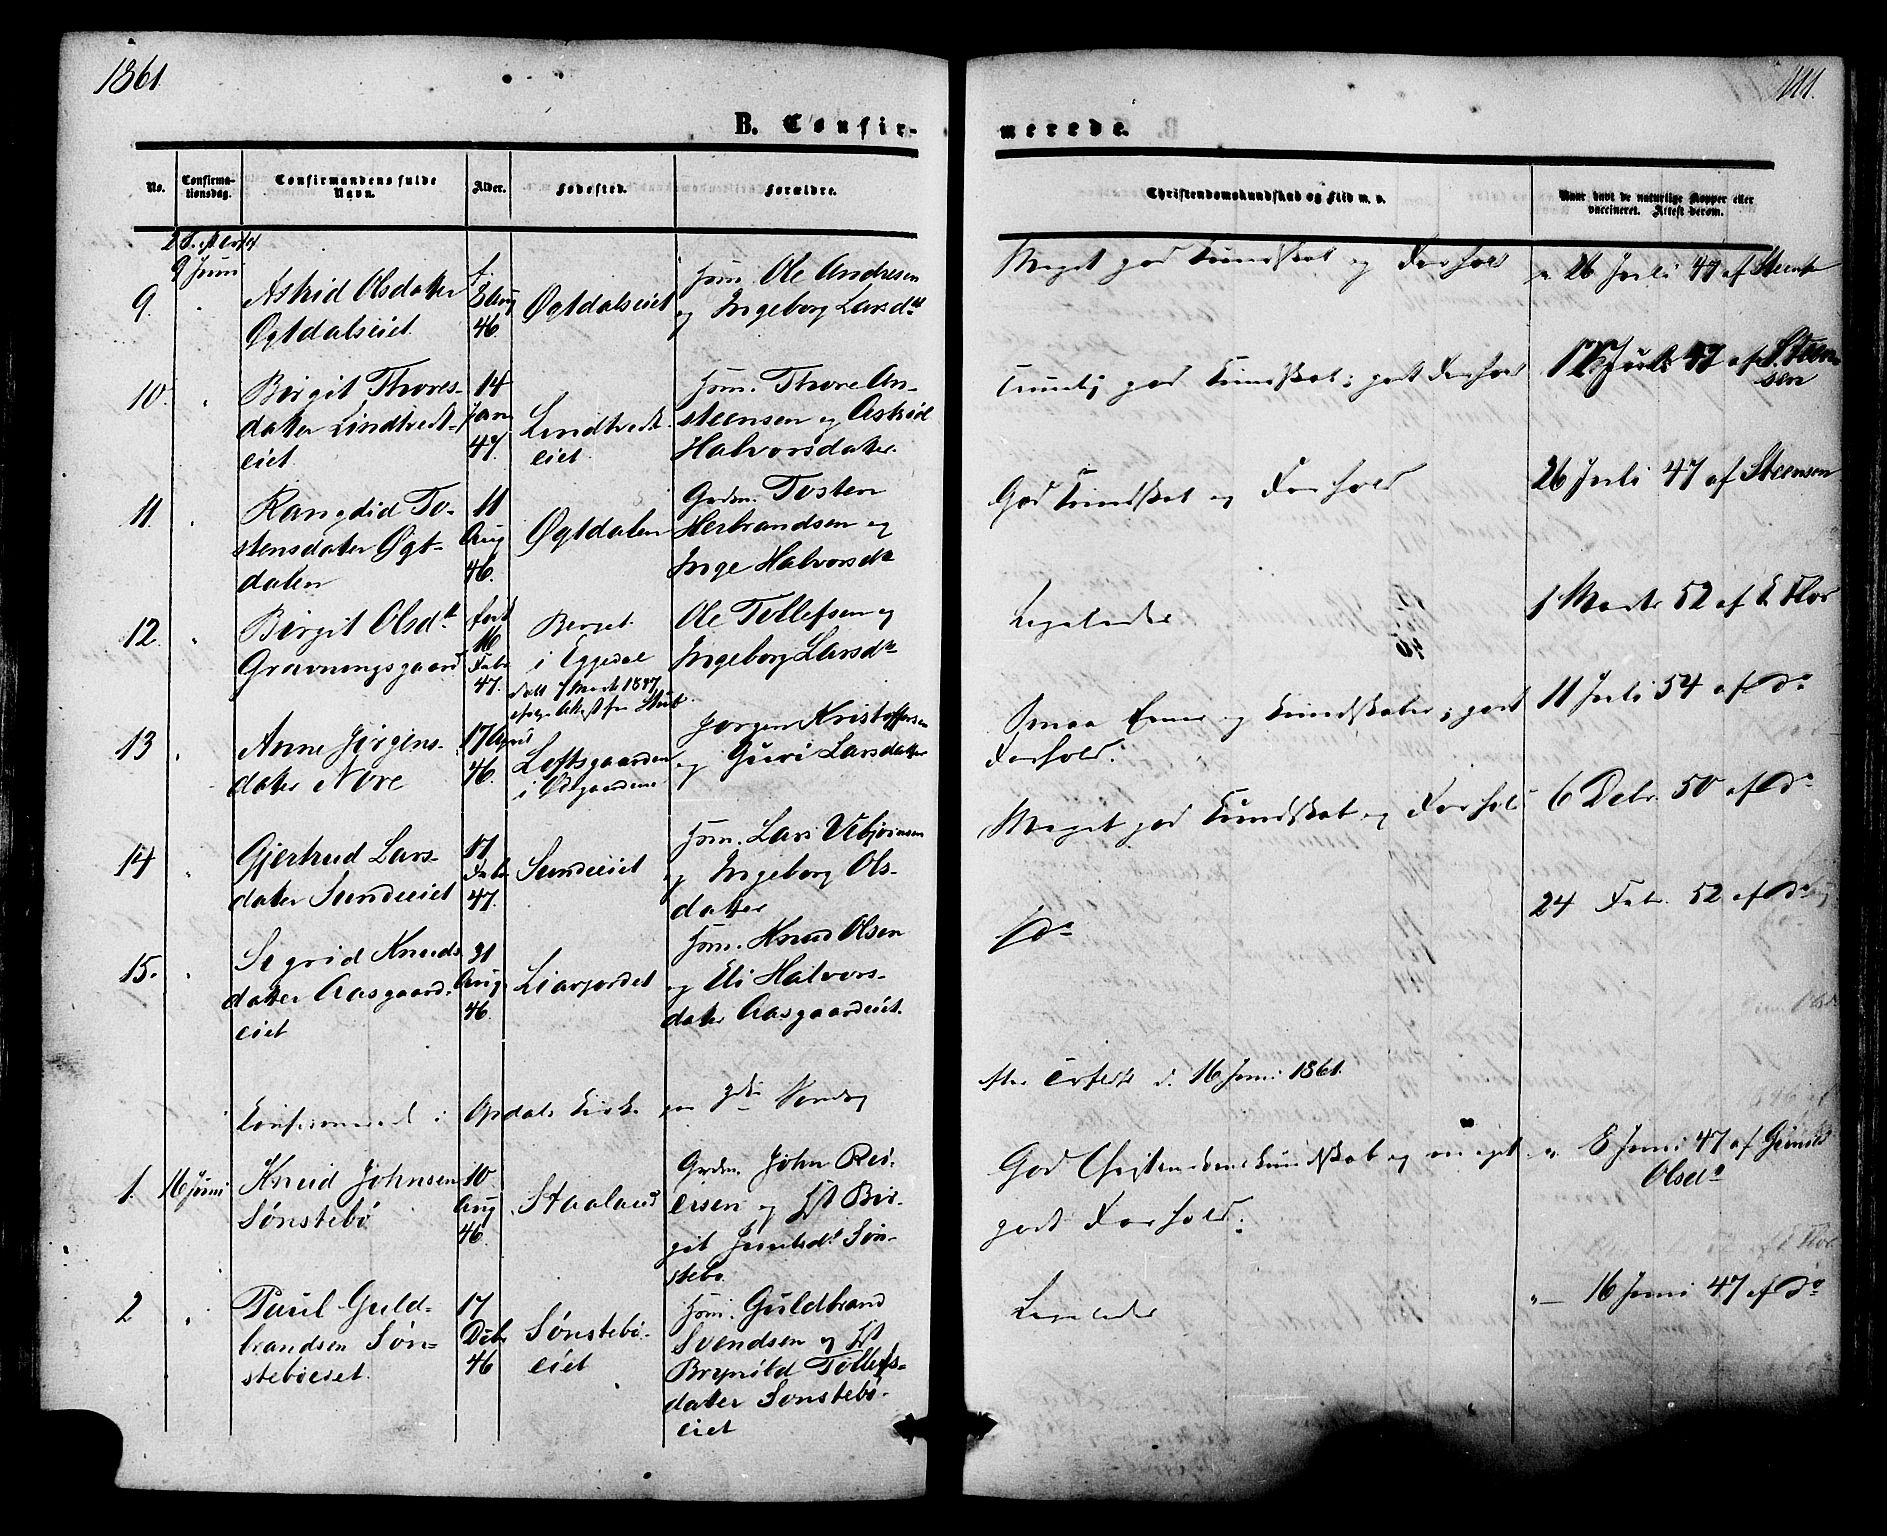 1861.
111.
B. Confir-
merede.
No.
Confirma-
tionsdag.
Confirmandens fulde
Navn.
Alder.
Fødested.
Forældre.
Christendomskundskab og Flid m. v.
Naar havt de naturlige Kopper eller
vaccineret. Attest derom.
9 Juni
9.
Astrid Olsdatter
Øgtdalseiet.
46.
Øgtdalseiet
Huusm. Ole Andresen
og Ingeborg Larsdtr
Meget god Kundskab og Forhold
26 Juli 47 af Steens
10.
Birgit Thores-
datter Lindtvedt-
eiet.
14
Jan
47.
Lindtvedt-
eiet.
Huusm. Thore An-
steensen og Astrid
Halvorsdatter.
Temmelig god Kundskab; godt Forhold
Juli 47 af Steen-
sen
11
Rangdid To-
stensdatter Øgt-
dalen
11
Aug
46.
Øgtdalen
Grdm. Tosten
Herbrandsen og
Inge Halvorsdtr
God Kundskab og Forhold
26 Juli 47 af Steensen
12.
Birgit Olsdtr
Gravningsgaard
født
16
Febr
47.
Berget
i Eggedal
Ole Tollefsen og
Ingeborg Larsdtr
Ligeledes
1 Marts 52 af E Flor
13
Anne Jørgens-
datter Nore
17 April
46.
Loftsgaarden
i
Jørgen Kristoffersen
og Guri Larsdatter
Smaa Evner og Kundskaber; godt
Forhold.
11 Juli 54 af Do
14
Gjertrud Lars-
datter Sundeeiet
17
Febr
47.
Sundeeiet
Huusm. Lars Vebjørnsen
og Ingeborg Ols-
datter
Meget god Kundskab og Forhold
6 Debr. 50 af Do
15.
Sigrid Knuds
datter Aasgaard-
eiet
31
Aug
46.
Liarjordet
Huusm. Knud Olsen
og Eli Halvors-
datter Aasgaardeiet.
Do
24 Febr. 52 af Do
Konfirmerede i Opdals Kirke paa 3die Søndag
efter Trefold. d. 16 Juni 1861.
1.
16 Juni
Knud Johnsen
Sønstebø
10
Aug
46.
Staaland
Grdm. John Rei-
ersen og Bir-
git Søn-
stebø.
God Christendomskundskab og meget
godt Forhold.
8 Juni 47 af Gunild
Olsdtr
2
Paul Guld-
brandsen Søn-
stebøeiet.
17
Debr
46
Sønstebø-
eiet
Huusm. Guldbrand
Svendsen og
Brynild Tollefs-
datter Sønstebø-
eiet
Ligeledes
16 Juni 47 af Do